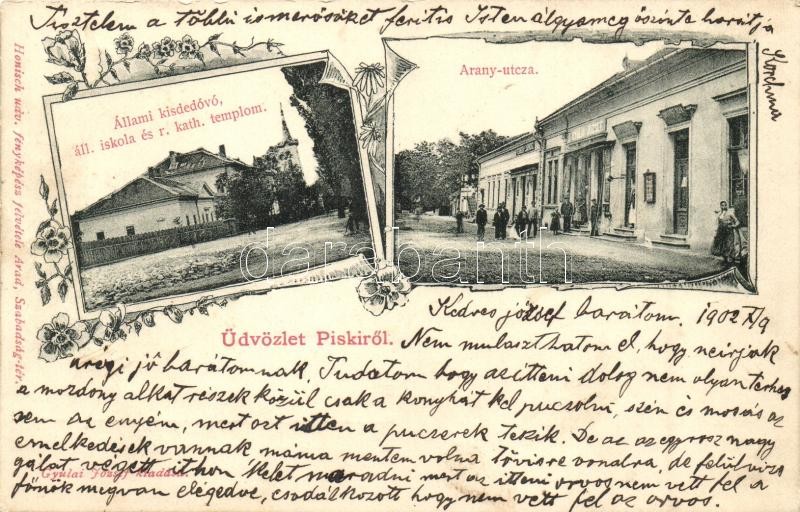 Tisztelem a többi ismerősöket feritis Isten álgyameg őszinte barátja
Korchma
Honisch udv. fényképész felvétele Arad, Szabadság-tér.
Állami kisdedóvó,
áll. iskola és r. kath. templom.
Arany-utcza.
darabanth
Üdvözlet Piskiről.
Kedves józsef barátom. 1902 X/9
Nem mulaszthatom el, hogy neirjak
régi jó barátomnak, Tudatom hogy azitteni dolog nem olyan terhes
a mozdony alkat részek közül csak a konyhát kel puczolni, szén és mosás az
sem az enyém, mert azt itten a puczerek teszik. De az az egy rosz nagy
emelkedések vannak máma mentem volna tövisre vonalra, de felülvizs
gálat végett itthon kelet maradni mert az itteni orvos nem vett fel a
főnök megvan elégedve, csodálkozott hogy nem vett fel az orvos.
Gyulai József kiadása